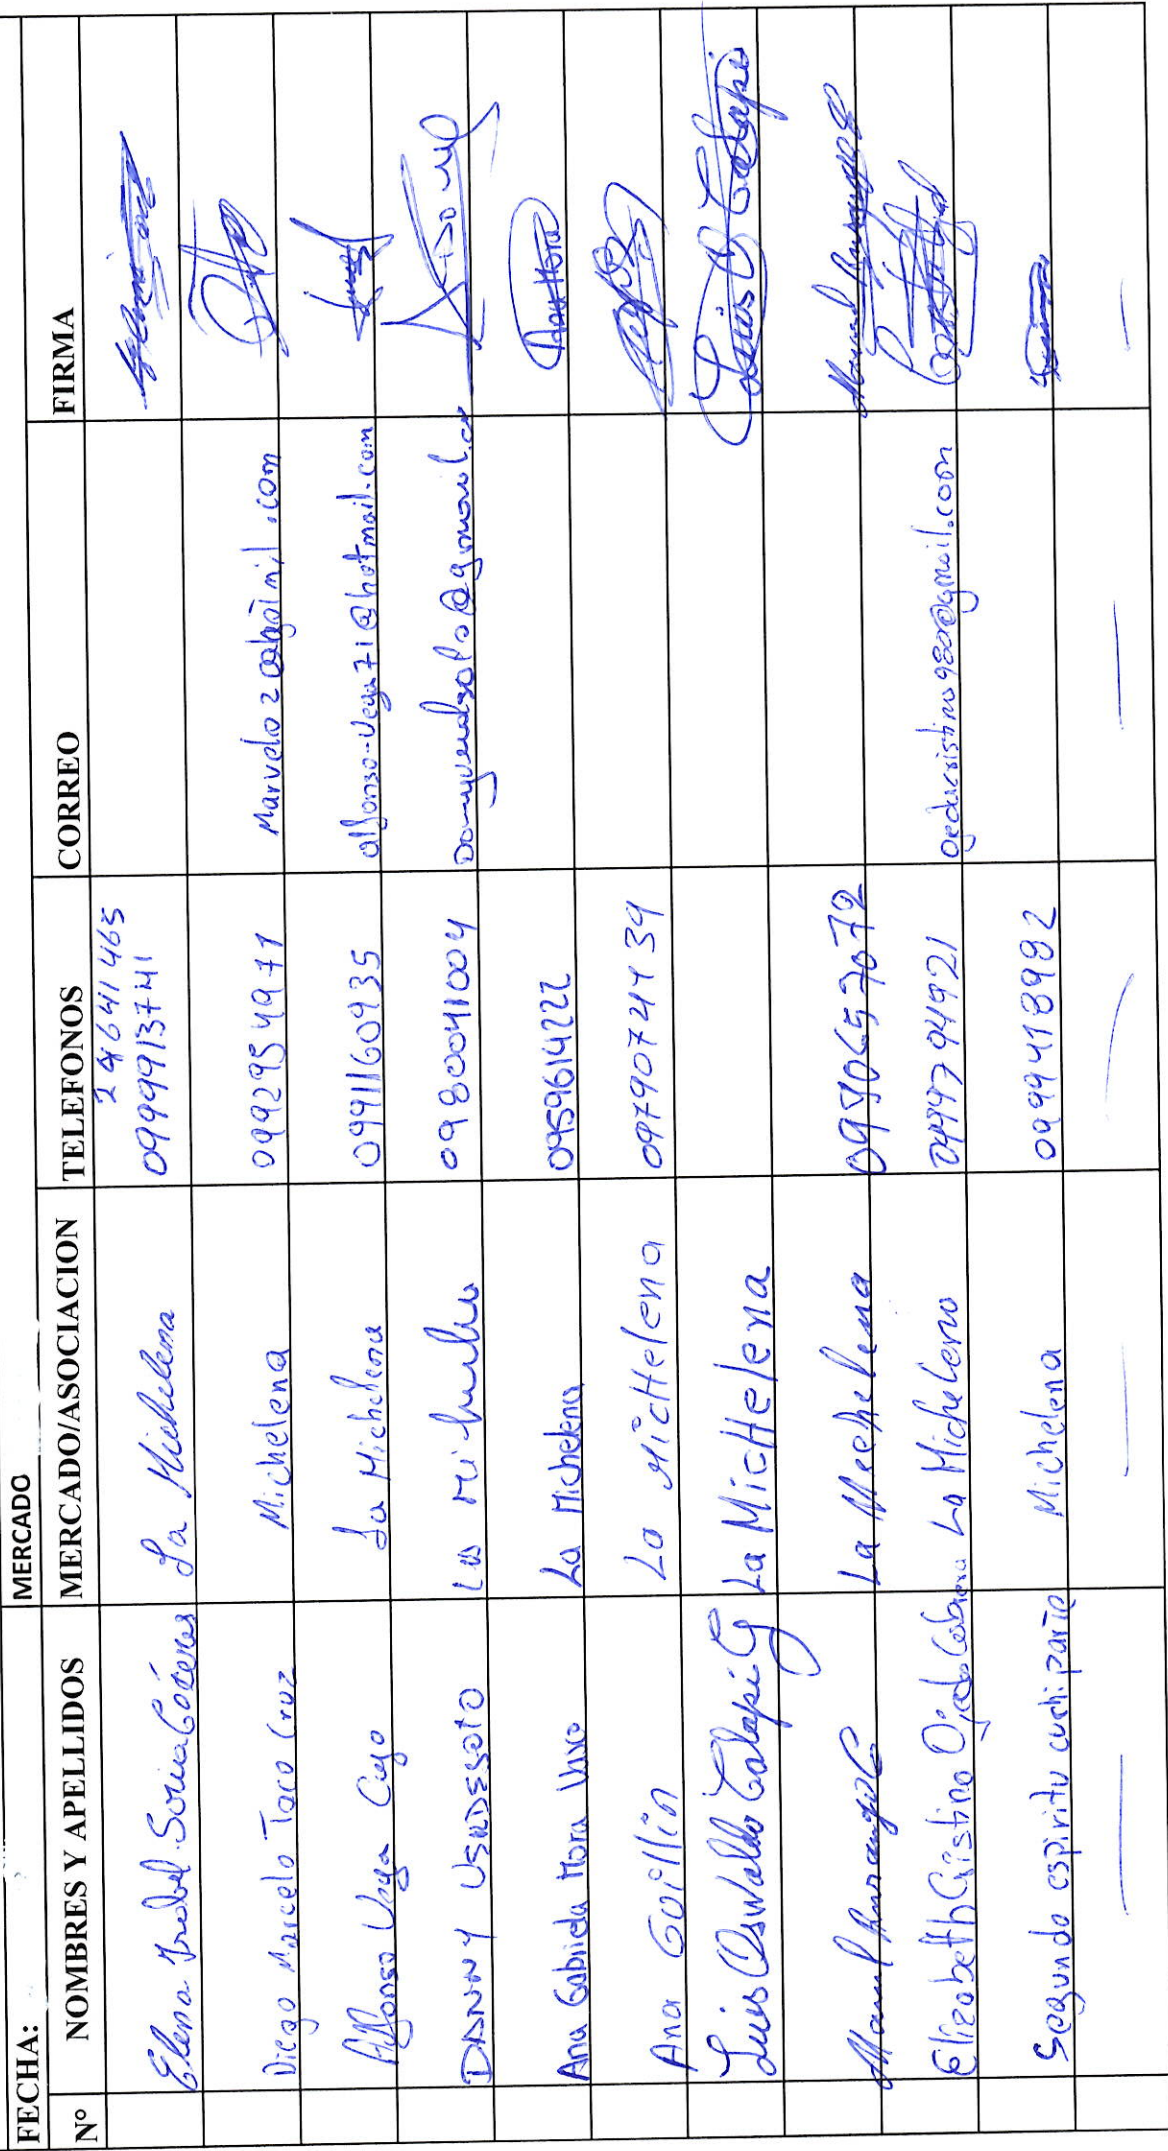 FECHA: MERCADO
N° NOMBRES Y APELLIDOS MERCADO/ASOCIACION TELEFONOS CORREO FIRMA
2641465
Elena Isabel Soria Cáceres La Michelena 0999913741
Diego Marcelo Taco Cruz Michelena 0992954971
Alfonso Vega Cuyo La Michelena 0991160935 alfonso-vega71@hotmail.com
DANNY VERDESOTO La Michelena 0980041004
Ana Gabriela Mora Vaca La Michelena 0959614222
Ana Guillín La MicHelena 0979074439
Luis Oswaldo Calapi G La MicHelena Luis O Calapi
Manuel La Mechelena
Elizabeth Cristina Ojeda Cabrera La Michelena ojedacristina980@gmail.com
Segundo espiritu cuchiparte Michelena 0999418982